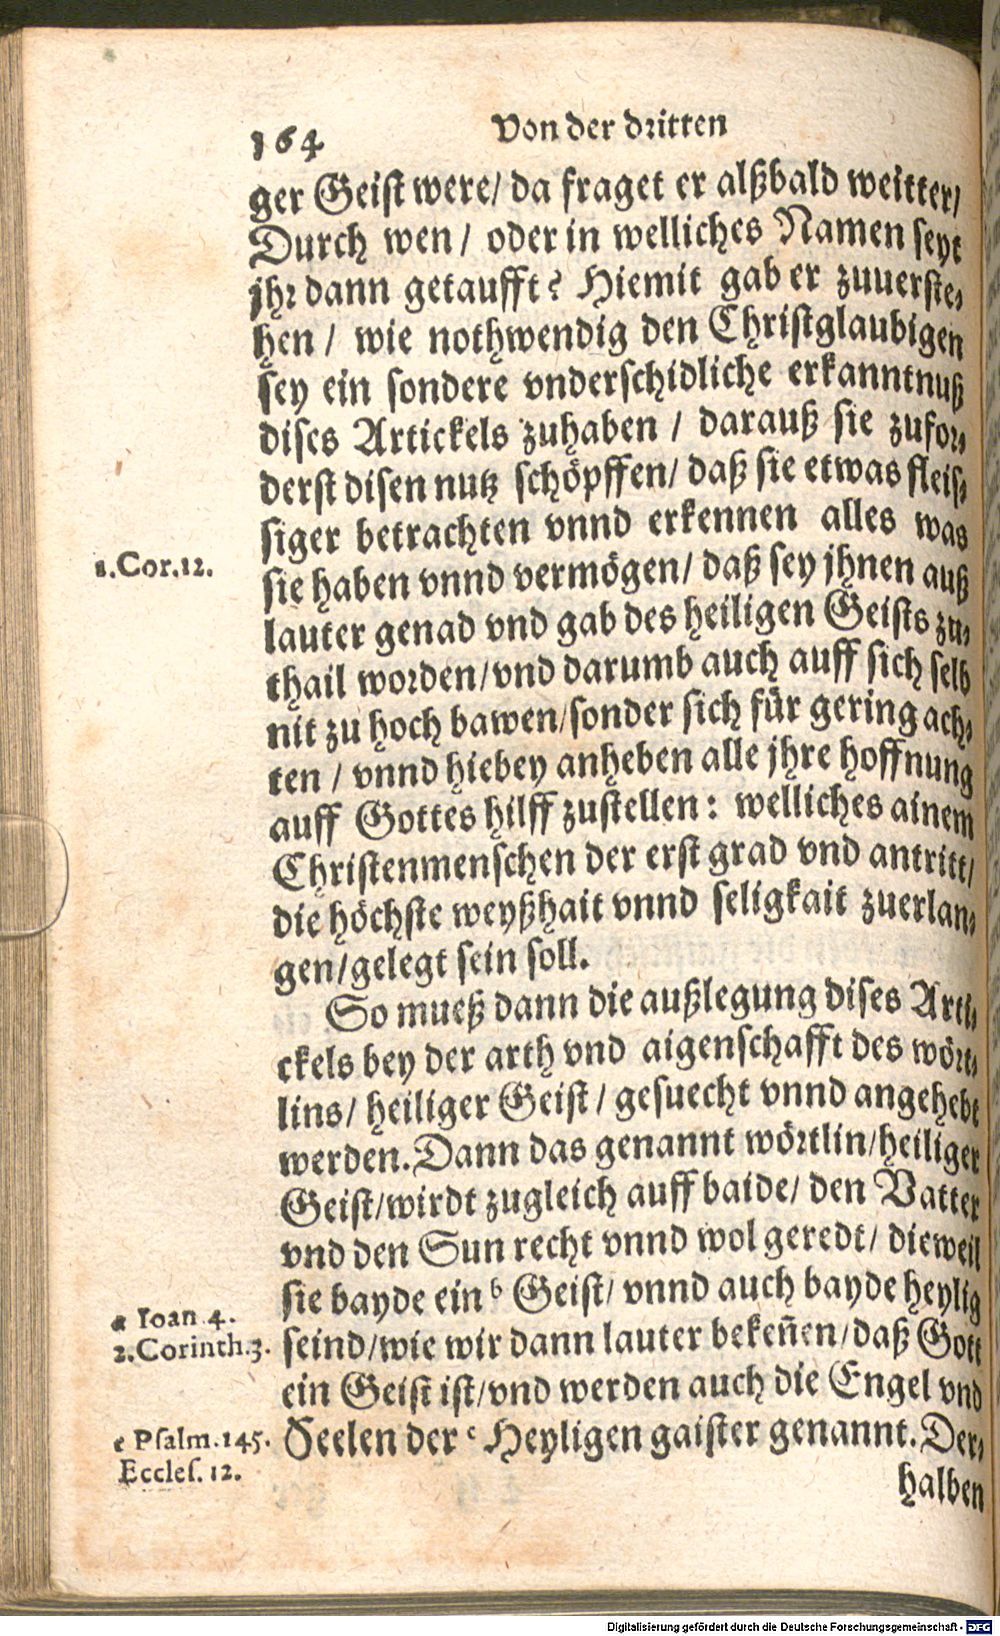 164 Von der dritten
ger Geist were/ da fraget er alßbald weitter/
Durch wen/ oder in welliches Namen seyt
jhr dann getaufft? Hiemit gab er zuuerste-
hen/ wie nothwendig den Christglaubigen
sey ein sondere vnderschidliche erkanntnuß
dises Artickels zuhaben/ darauß sie zufor-
derst disen nutz schöpffen/ daß sie etwas fleis-
siger betrachten vnnd erkennen alles was
1.Cor.12.
sie haben vnnd vermögen/ daß sey jhnen auß
lauter genad vnd gab des heiligen Geists zu-
thail worden/ vnd darumb auch auff sich selb
nit zu hoch bawen/ sonder sich für gering ach-
ten/ vnnd hiebey anheben alle jhre hoffnung
auff Gottes hilff zustellen: welliches ainem
Christenmenschen der erst grad vnd antritt/
die höchste weyßhait vnnd seligkait zuerlan-
gen/ gelegt sein soll.
So mueß dann die außlegung dises Arti-
ckels bey der arth vnd aigenschafft des wört-
lins/ heiliger Geist/ gesuecht vnnd angehebt
werden. Dann das genannt wörtlin/ heiliger
Geist/ wirdt zugleich auff baide/ den Vatter
vnd den Sun recht vnnd wol geredt/ dieweil
sie bayde ein b Geist/ vnnd auch bayde heylig
Ioan 4.
2.Corinth.3.
seind/ wie wir dann lauter bekeñen/ daß Gott
ein Geist ist/ vnd werden auch die Engel vnd
c Psalm.145.
Eccles. 12.
Seelen der c Heyligen gaister genannt. Der-
halben
Digitalisierung gefördert durch die Deutsche Forschungsgemeinschaft - DFG